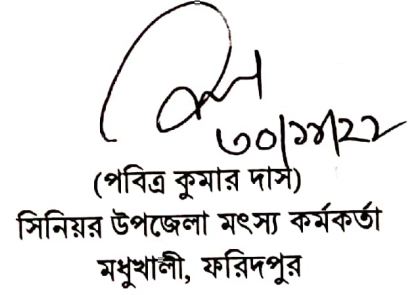 ৩০/১১/২২
(পবিত্র কুমার দাস)
সিনিয়র উপজেলা মৎস্য কর্মকর্তা
মধুখালী, ফরিদপুর